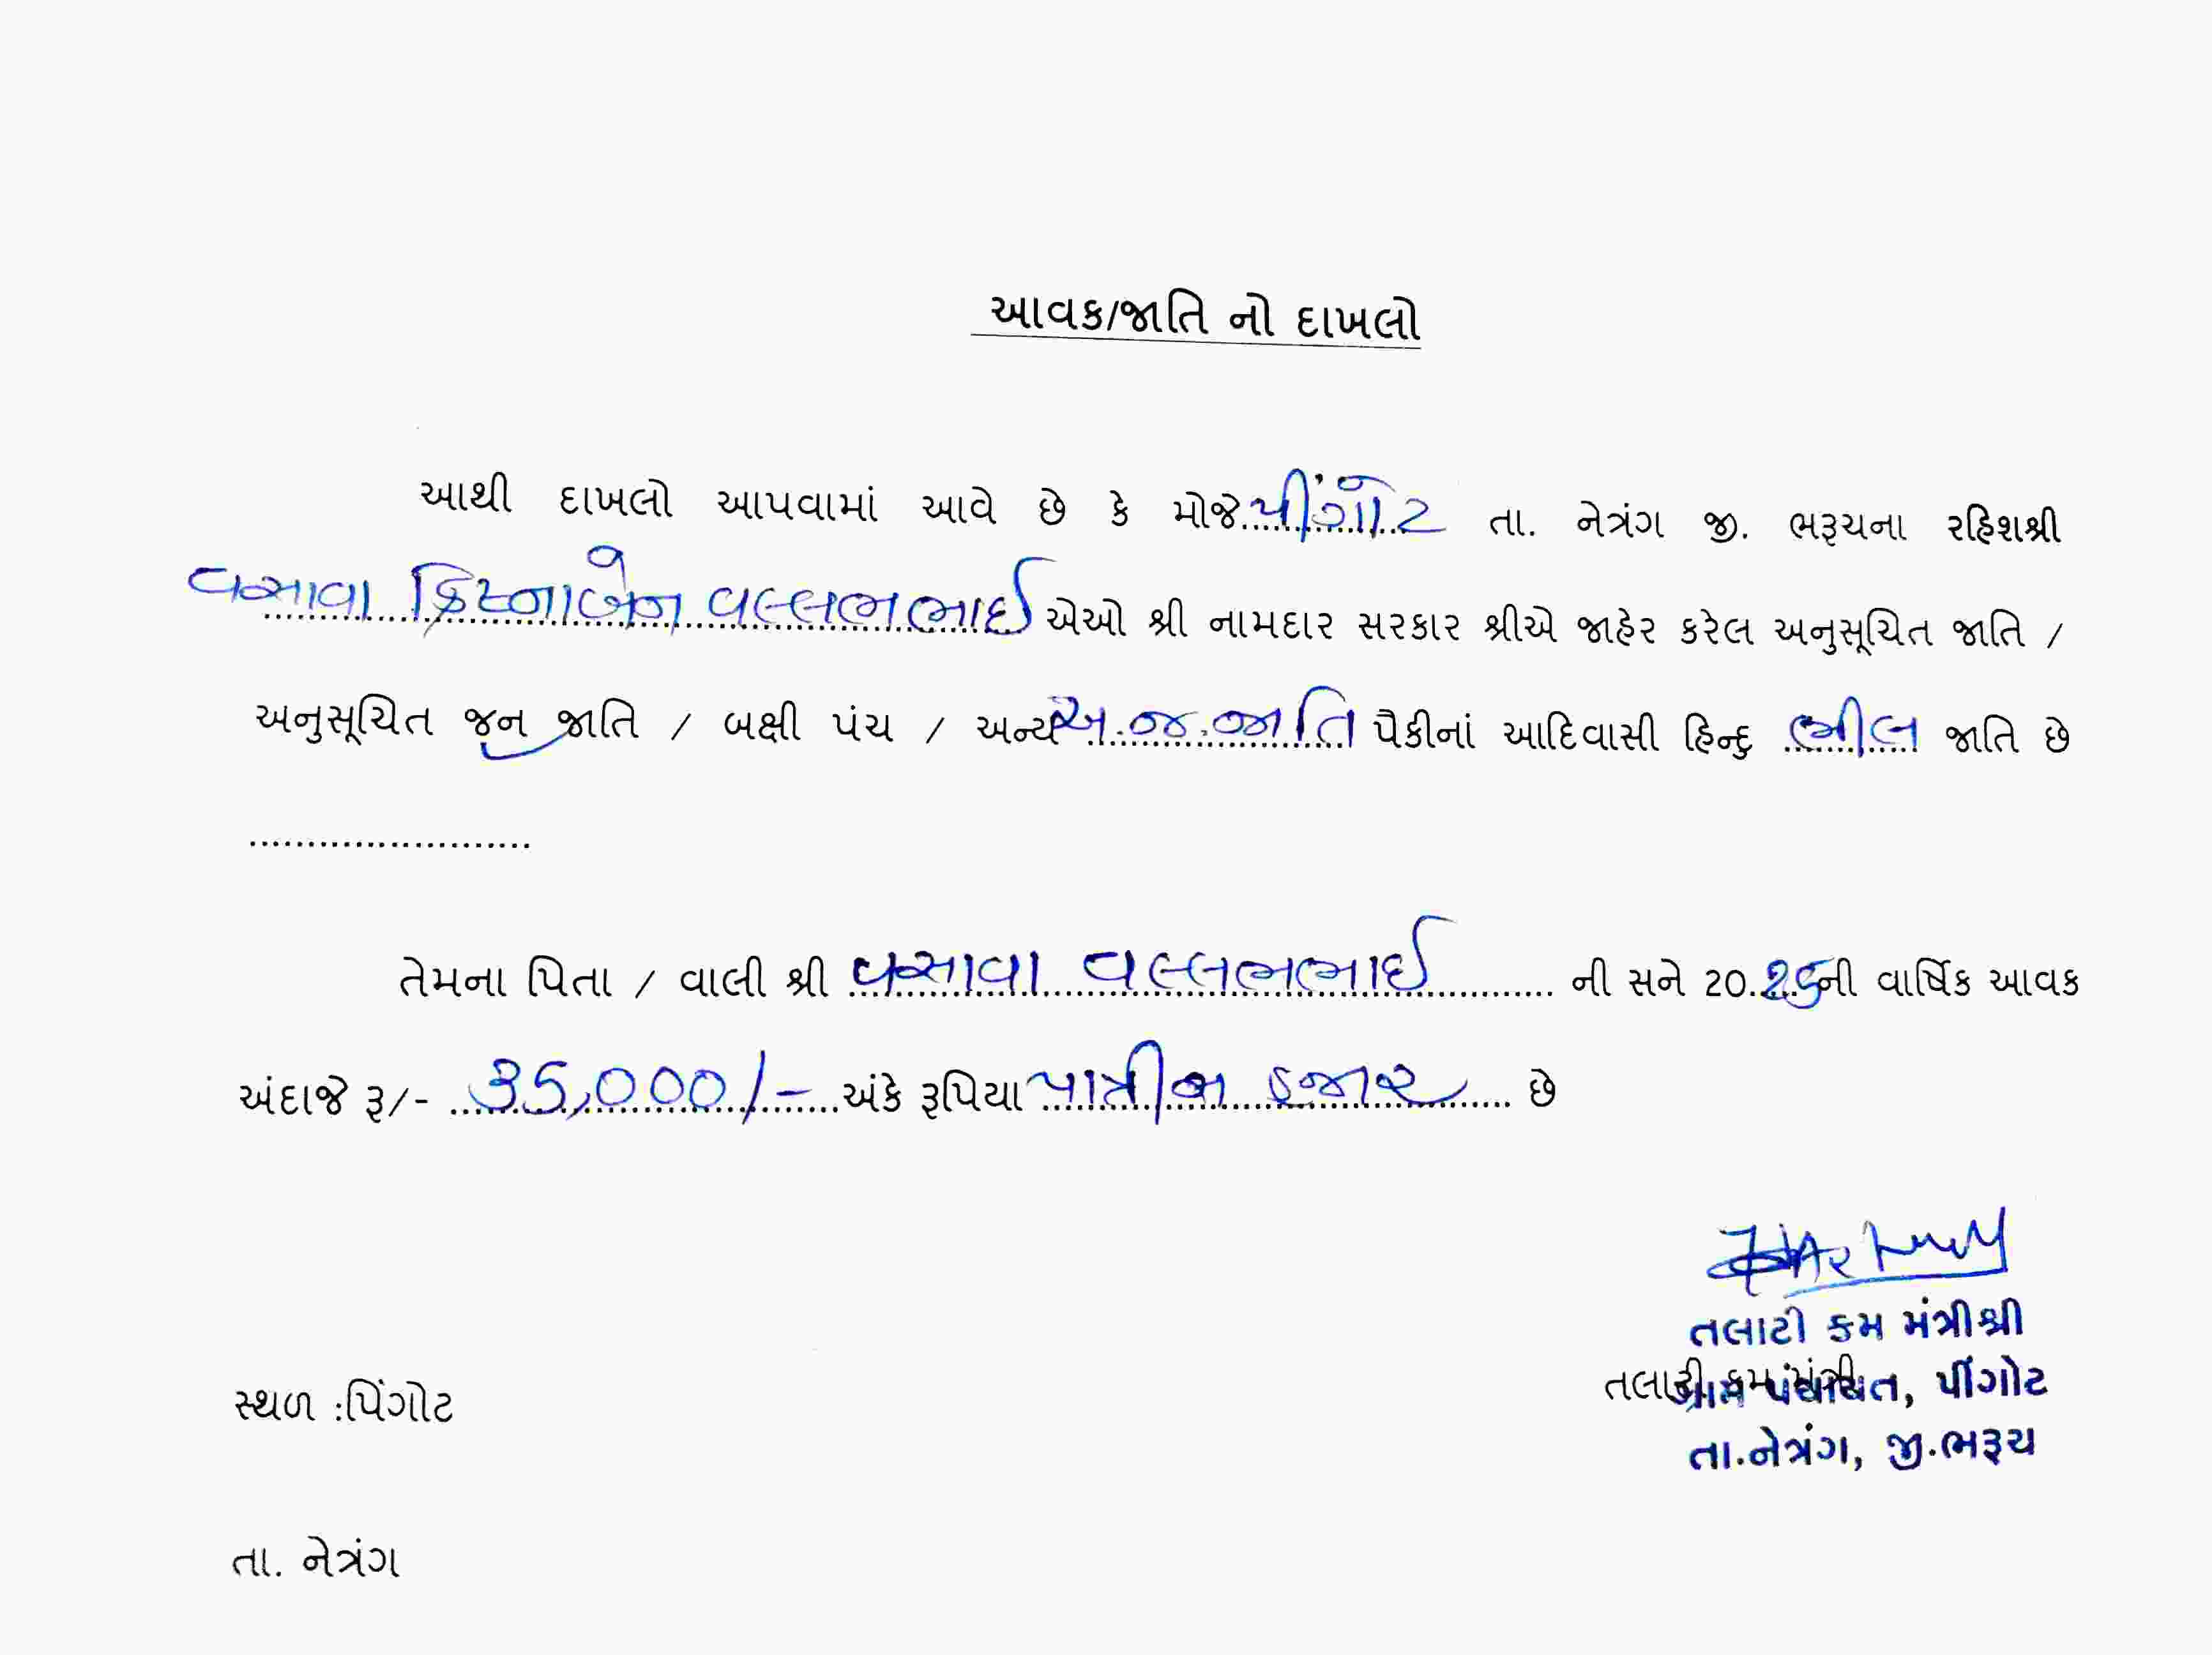 આવક/જાતિ નો દાખલો
આથી દાખલો આપવામાં આવે છે કે મોજે પીંગોટ તા. નેત્રંગ જી. ભરૂચના રહિશશ્રી
વસાવા ક્રિષ્નાબેન વલ્લભભાઈ એઓ શ્રી નામદાર સરકાર શ્રીએ જાહેર કરેલ અનુસૂચિત જાતિ /
અનુસૂચિત જન જાતિ / બક્ષી પંચ / અન્ય અ.જ.જાતિ પૈકીનાં આદિવાસી હિન્દુ ભીલ જાતિ છે
........................
તેમના પિતા / વાલી શ્રી વસાવા વલ્લભભાઈ ની સને 20. ની વાર્ષિક આવક
અંદાજે રૂ/- 35,000/- અંકે રૂપિયા પાત્રીસ હજાર છે
તલાટી કમ મંત્રીશ્રી
તલાટી કમ મંત્રી
ગ્રામ પંચાયત, પીંગોટ
સ્થળ :પિંગોટ
તા.નેત્રંગ, જી.ભરૂચ
તા. નેત્રંગ